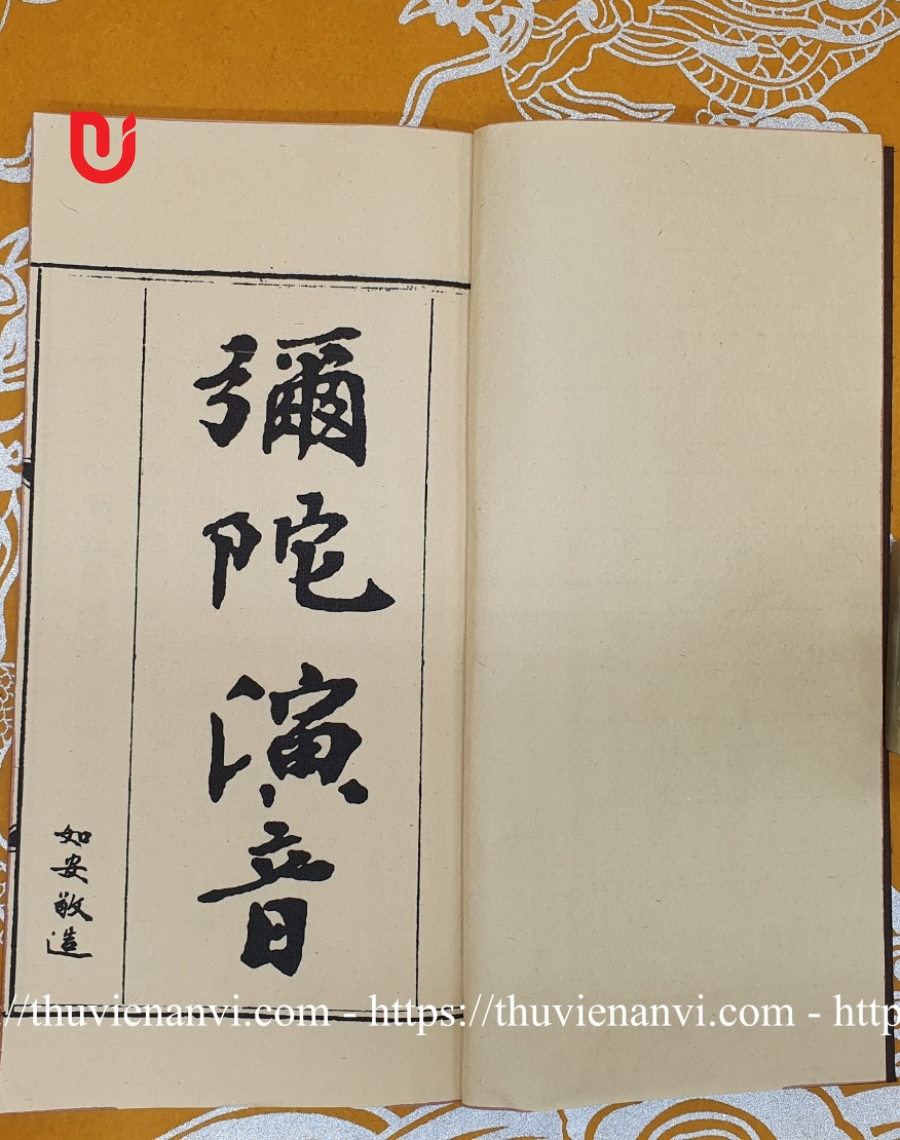 彌陀演音
如安敬造
://thuvienanvi.com - https://thuvienanvi.com - http